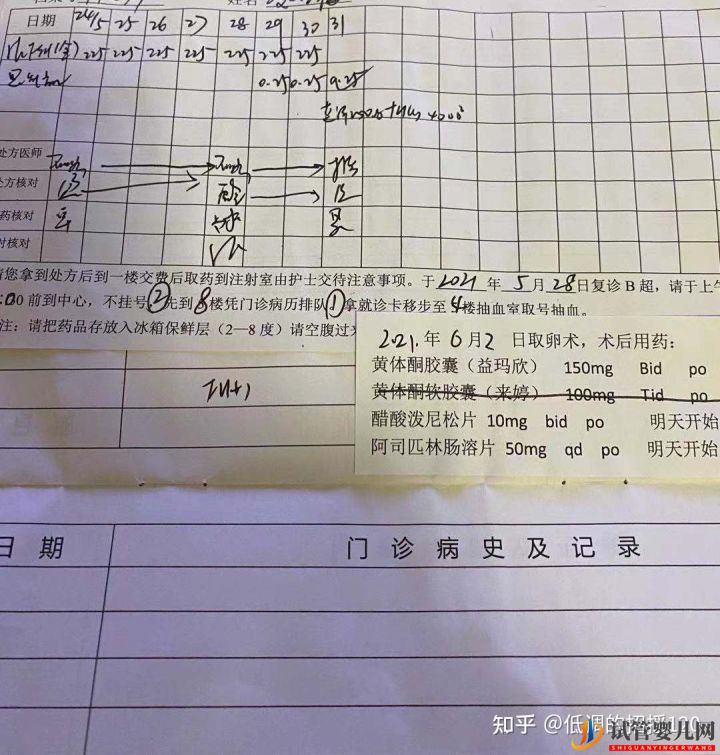 姓名
日期 24/5 25 26 27 28 29 30 31
225 225 225 225 225 225 225
0.25 0.25 0.25
处方医师
处方核对
药核对
对核对
请您拿到处方后到一楼交费后取药到注射室由护士交待注意事项。于2021年5月28日复诊B超，请于上午
:00前到中心，不挂号②先到8楼凭门诊病历排队①拿就诊卡移步至4楼抽血室取号抽血。
注：请把药品存放入冰箱保鲜层（2—8度）请空腹过来
2021.年6月2日取卵术，术后用药：
黄体酮胶囊（益玛欣） 150mg Bid po
黄体酮软胶囊（来婷） 100mg Tid po
醋酸泼尼松片 10mg bid po 明天开始
阿司匹林肠溶片 50mg qd po 明天开始
日期 门诊病史及记录
知乎 @低调的招摇120
试管婴儿网
SHIGUANYINGERWANG